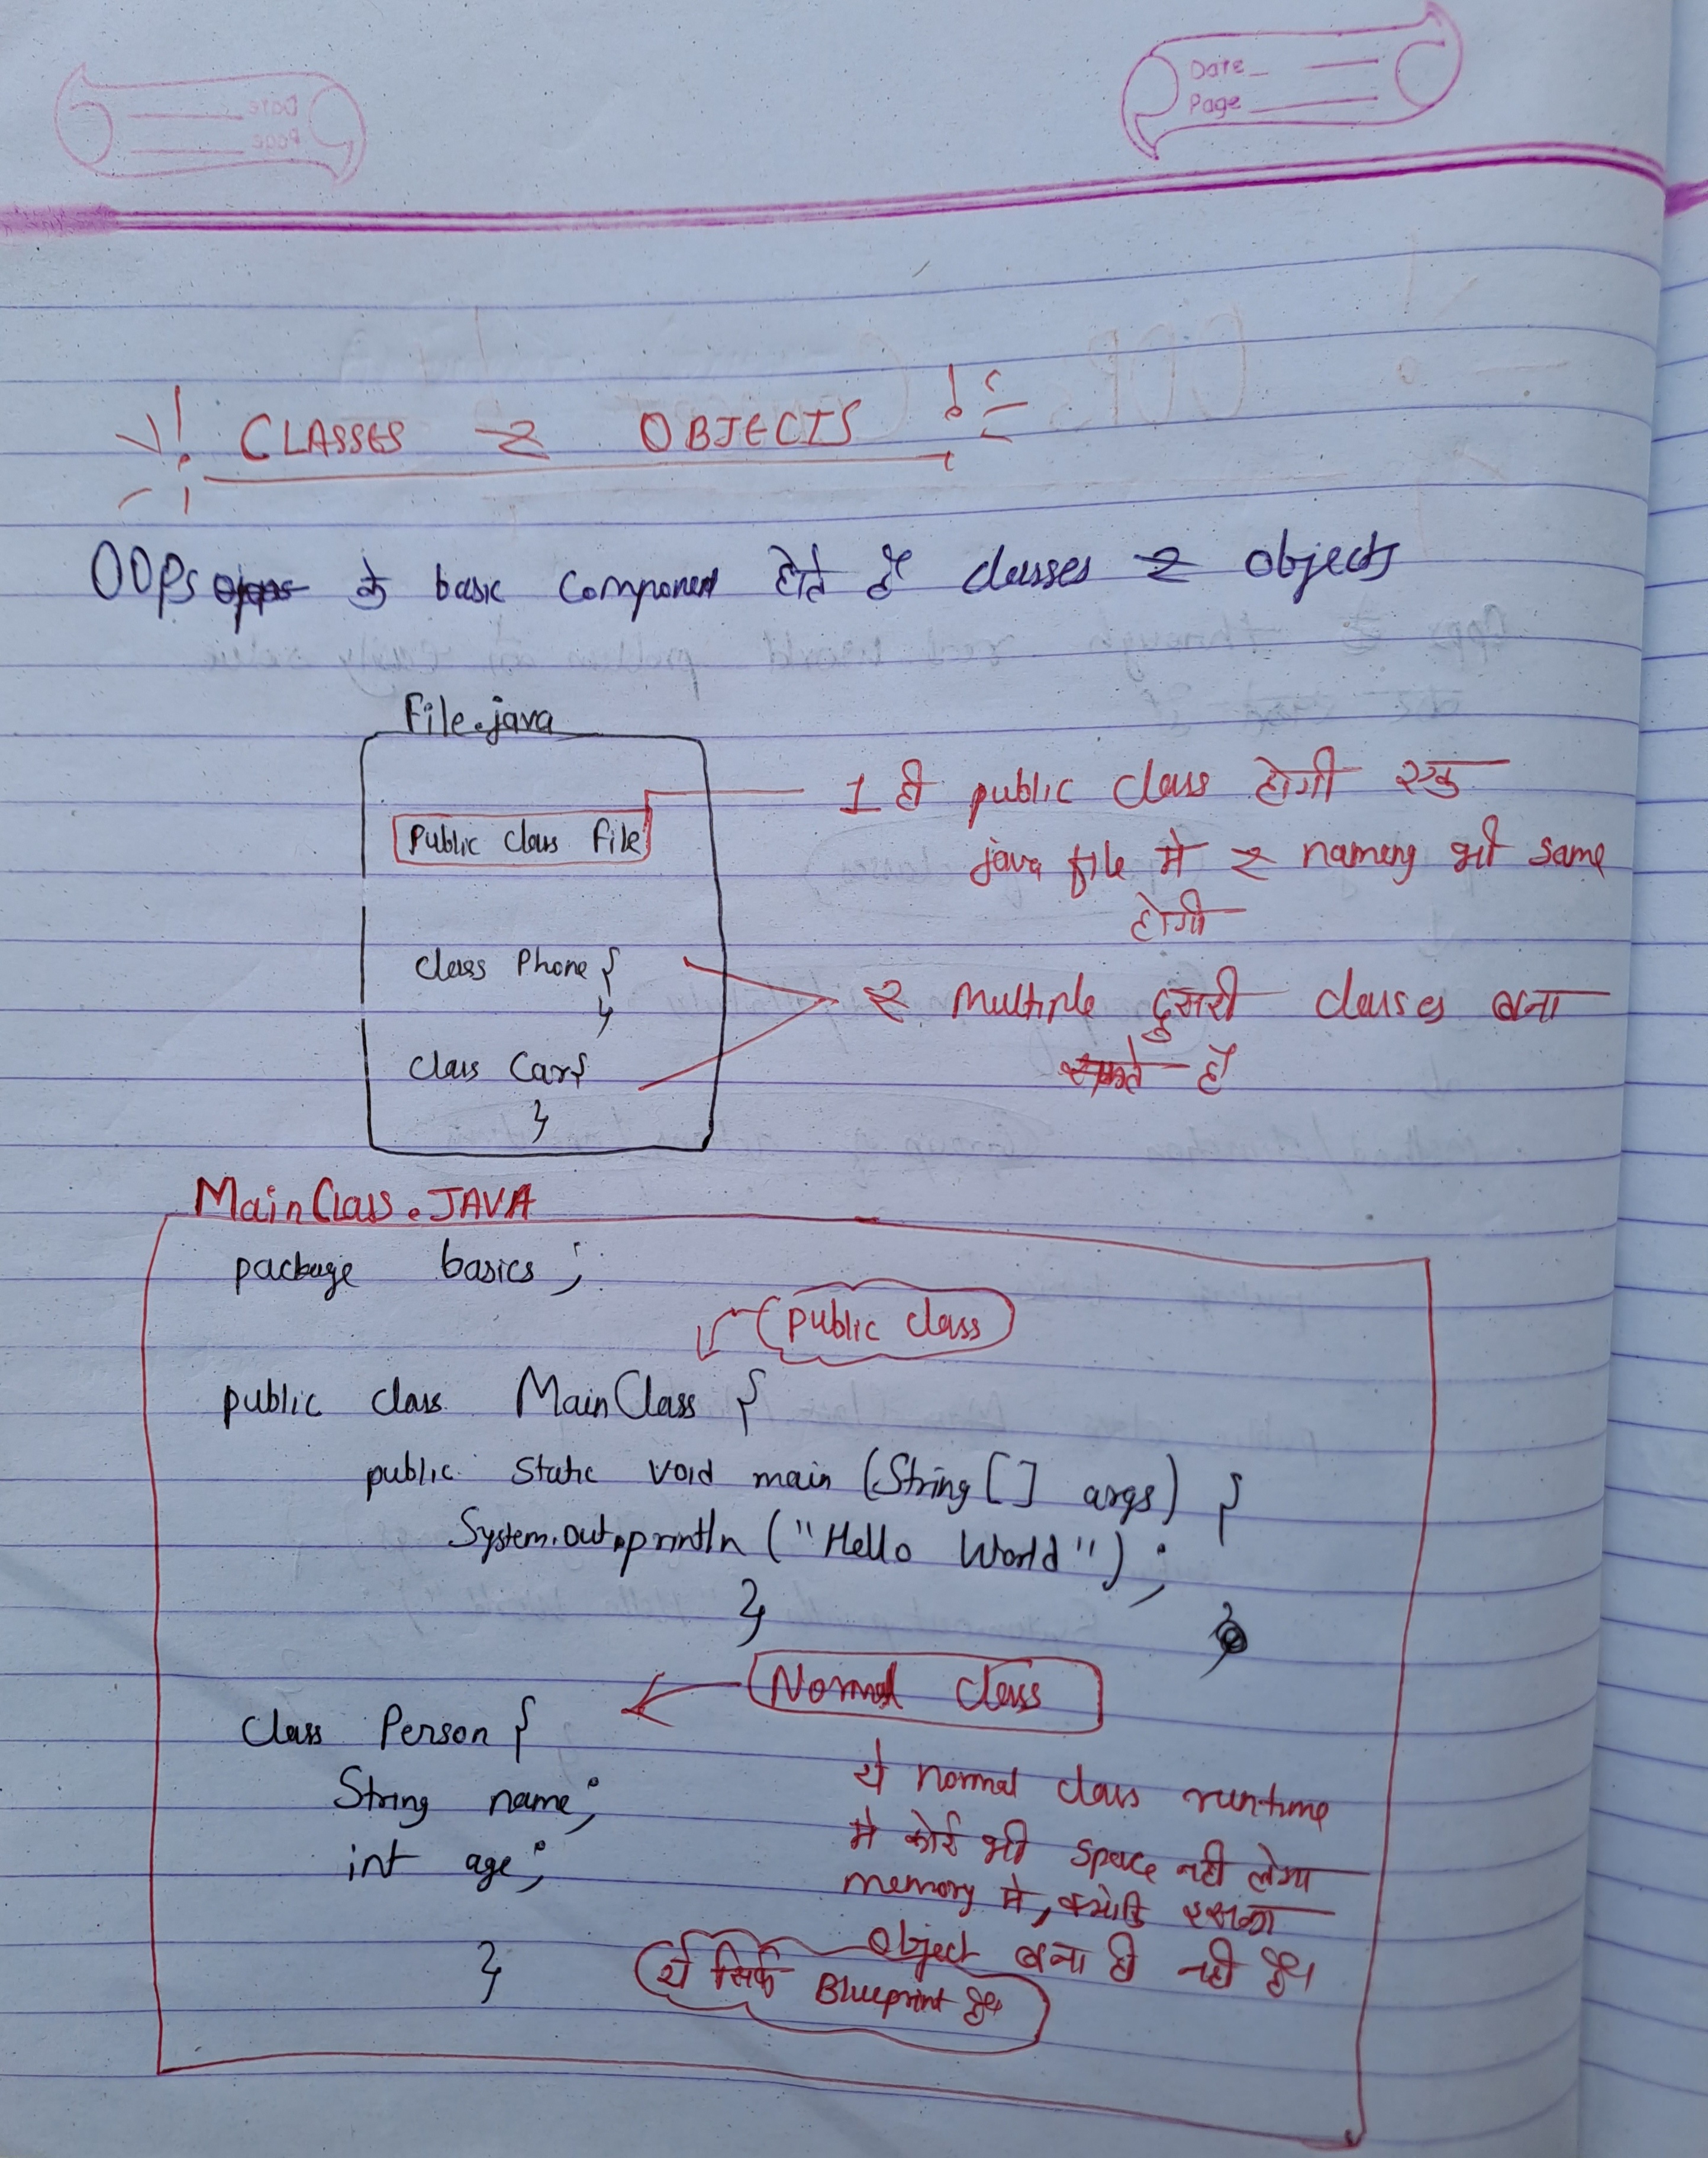 Date
Page
CLASSES & OBJECTS :-
OOPs के basic component होते है classes & objects
File.java
Public class File
1 ही public class होगी एक
java file मे & naming भी same
होगी
class Phone {
}
& Multiple दुसरी classes बना
सकते है
class Car {
}
MainClass.JAVA
package basics ;
public class
public class MainClass {
public static void main (String [] args) {
System.out.println ("Hello World") ;
}
}
Normal class
class Person {
String name;
int age;
}
ये normal class runtime
मे कोई भी space नही लेगा
memory मे, क्योकि इसका
object बना ही नही है।
ये सिर्फ Blueprint है।